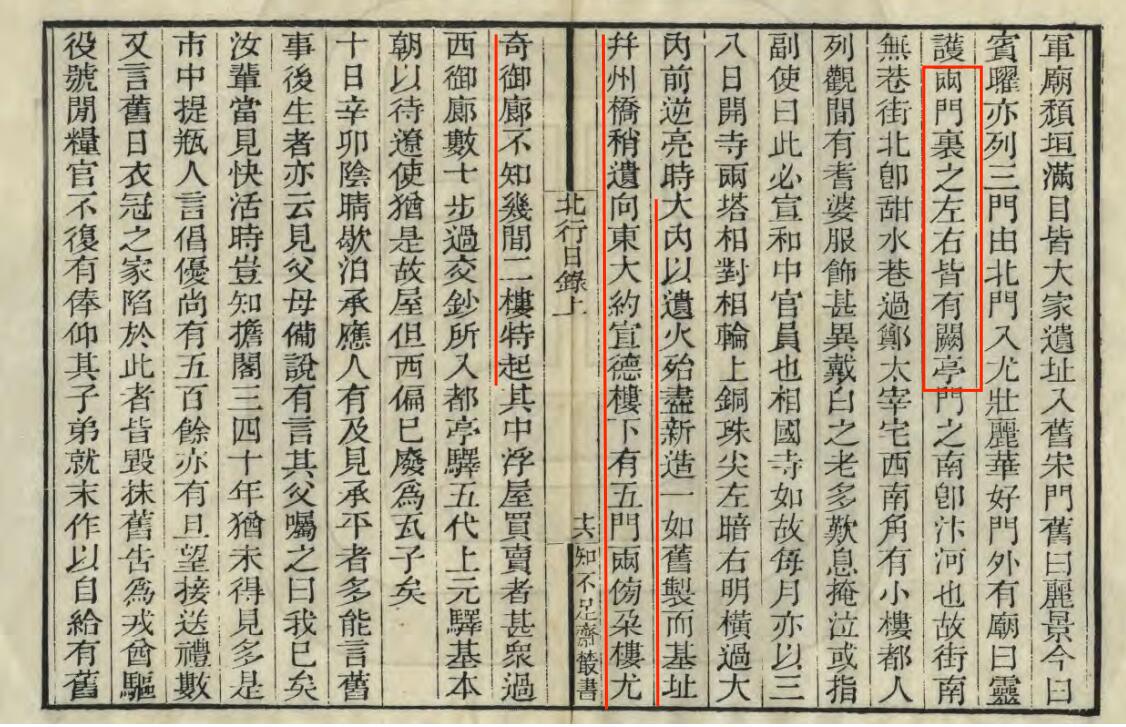 軍廟頹垣滿目皆大家遺址入舊宋門舊曰麗景今曰
賓曜亦列三門由北門入尤壯麗華好門外有廟曰靈
護兩門裏之左右皆有闕亭門之南卽汴河也故街南
無巷街北卽甜水巷過鄭太宰宅西南角有小樓都人
列觀間有耆婆服飾甚異戴白之老多歎息掩泣或指
副使曰此必宣和中官員也相國寺如故每月亦以三
八日開寺兩塔相對相輪上銅珠尖左暗右明橫過大
內前逆亮時大內以遺火殆盡新造一如舊製而基址
幷州橋稍遺向東大約宣德樓下有五門兩傍朶樓尤
北行日錄上
十六
知不足齋叢書
奇御廊不知幾間二樓特起其中浮屋買賣者甚衆過
西御廊數十步過交鈔所入都亭驛五代上元驛基本
朝以待遼使猶是故屋但西偏已廢爲瓦子矣
十日辛卯陰晴歇泊承應人有及見承平者多能言舊
事後生者亦云見父母備說有言其父囑之曰我已矣
汝輩當見快活時豈知擔閣三四十年猶未得見多是
市中提瓶人言倡優尚有五百餘亦有旦望接送禮數
又言舊日衣冠之家陷於此者皆毀抹舊告爲戎酋驅
役號閒糧官不復有俸仰其子弟就末作以自給有舊